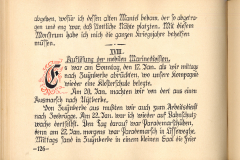 abgeben, wofür ich dessen alten Mantel bekam, der so abgetra-
gen und eng war, daß sämtliche Nähte platzten. Mit diesem
Monstrum habe ich mich die ganzen Kriegsjahre behelfen
müssen.
XVII.
Auflösung der mobilen Marinedivision.
Es war am Sonntag, den 17. Jan. als wir mittags
nach Zuijenkerke abrückten, wo unsere Kompagnie
wieder eine Kletterschule belegte.
Am 20. Jan. machten wir von dort aus einen
Ausmarsch nach Nijtkerke.
Von Zuijenkerke aus mußten wir auch zum Arbeitsdienst
nach Zeebrügge. Am 22. Jan. war ich wieder auf Bahnschutz-
wache dortselbst. Am Tag darauf war Parademarschüben,
denn am 27. Jan. morgens war Parademarsch in Uitkerke.
Mittags fand in Zuijenkerke in einem kleinen Saal die Feier
-126-